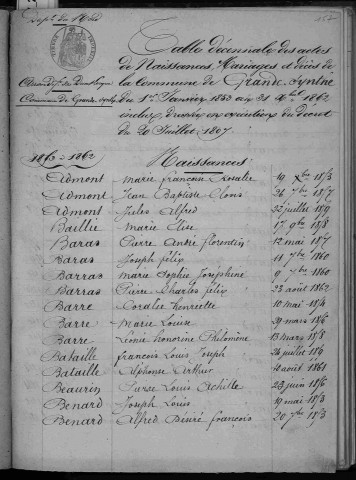 Table Décennale des actes
de Naissances, Mariages et Décès de
la Commune de Grande-Synthe
Commune de Grande-Synthe
du 1er Janvier 1853 au 31 Xbre 1862
inclus, dressée en exécution du décret
du 20 Juillet 1807.
1853 à 1862
Naissances
Admont Marie françoise Rosalie 19 Xbre 1853
Admont Jean Baptiste Clovis 1857
Admont Jules Alfred juillet 1859
Baillie Marie Elise 17 9bre 1858
Baras Pierre André florentin 12 mai 1857
Baras Joseph félix 18 7bre 1860
Barras Marie Sophie Joséphine 9 7bre 1860
Barras Pierre Charles félix 23 août 1862
Barre Coralie henriette 10 mai 1854
Barre Marie Louise 29 mars 1856
Barre Léonie honorine Philomène 13 mars 1858
Bataille françois Louis Joseph juillet
Bataille Alphonse Arthur août 1861
Beaurin Louis Achille juin 1856
Benard Joseph Louis 19 mai 1853
Benard Alfred Désiré françois 20 7bre 1853